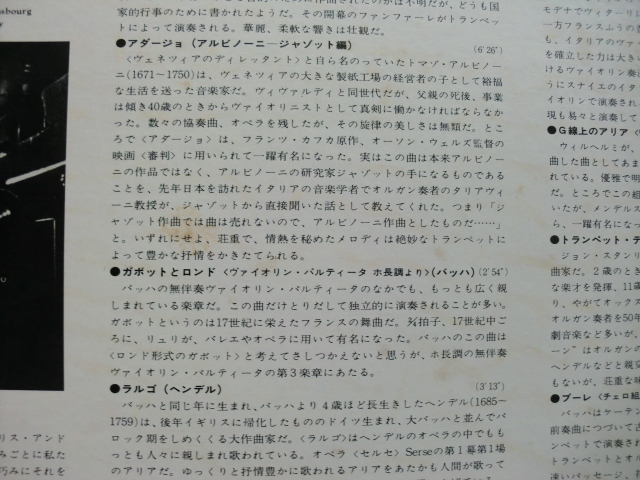 sbourg
家的行事のために書かれたようだ。その開幕のファンファーレがトランペッ
トによって演奏される。華麗、柔軟な響きは壮観だ。
●アダージョ (アルビノーニ―ジャゾット編) (6′26″)
〈ヴェネツィアのディレッタント〉と自ら名のっていたトマゾ・アルビノー
ニ(1671～1750)は、ヴェネツィアの大きな製紙工場の経営者の子として裕福
な生活を送った音楽家だ。ヴィヴァルディと同世代だが、父親の死後、事業
は傾き40歳のときからヴァイオリニストとして真剣に働かなければならなか
った。数々の協奏曲、オペラを残したが、その旋律の美しさは無類だ。とこ
ろで〈アダージョ〉は、フランツ・カフカ原作、オーソン・ウェルズ監督の
映画〈審判〉に用いられて一躍有名になった。実はこの曲は本来アルビノー
ニの作品ではなく、アルビノーニの研究家ジャゾットの手になるものである
ことを、先年日本を訪れたイタリアの音楽学者でオルガン奏者のタリアヴィ
ーニ教授が、ジャゾットから直接聞いた話として教えてくれた。つまり「ジ
ャゾット作曲では曲は売れないので、アルビノーニ作曲としたものだ……」
と。いずれにせよ、荘重で、情熱を秘めたメロディは絶妙なトランペットに
よって豊かな抒情をかきたてられる。
●ガボットとロンド〈ヴァイオリン・パルティータ ホ長調より〉(バッハ) (2′54″)
バッハの無伴奏ヴァイオリン・パルティータのなかでも、もっとも広く親
しまれている楽章だ。この曲だけとりだして独立的に演奏されることが多い。
ガボットというのは17世紀に栄えたフランスの舞曲だ。拍子、17世紀中ご
ろに、リュリが、バレエやオペラに用いて有名になった。バッハのこの曲は
〈ロンド形式のガボット〉と考えてさしつかえないと思うが、ホ長調の無伴奏
ヴァイオリン・パルティータの第3楽章にあたる。
●ラルゴ (ヘンデル) (3′13″)
バッハと同じ年に生まれ、バッハより4歳ほど長生きしたヘンデル(1685～
1759)は、後年イギリスに帰化したもののドイツ生まれ、大バッハと並んでバ
ロック期をしめくくる大作曲家だ。〈ラルゴ〉はヘンデルのオペラの中でも
っとも人々に親しまれ歌われている。オペラ〈セルセ〉Serseの第1幕第1場
のアリアだ。ゆっくりと抒情豊かに歌われるアリアをあたかも人間が歌って
リス・アンド
みごとに私た
巧みにそれを
モデナでヴィター
一方フランスふうの
も、イタリアのヴァ
を確立した力は大き
けるヴァイオリン奏
うにスナイエのイタ
イオリンで演奏され
現も易々と演奏して
●G線上のアリア
ウィルヘルミが、
曲した曲としてあま
れている。優雅で明
だ。ところでこの組
いたが、メンデルス
ら、一躍有名になっ
●トランペット・テ
ジョン・スタンリ
曲家だ。2歳のとき
な楽才を発揮、11歳
り、やがてオックス
オルガン奏者を50年
劇音楽など多いが、
ーン”はオルガンの
ヘンデルなどと親交
もないが、荘重な味
●ブーレ〈チェロ組
バッハはケーテン
前奏曲につづいて古
ンペットで演奏され
トランペットとオル
速いパッセージ、